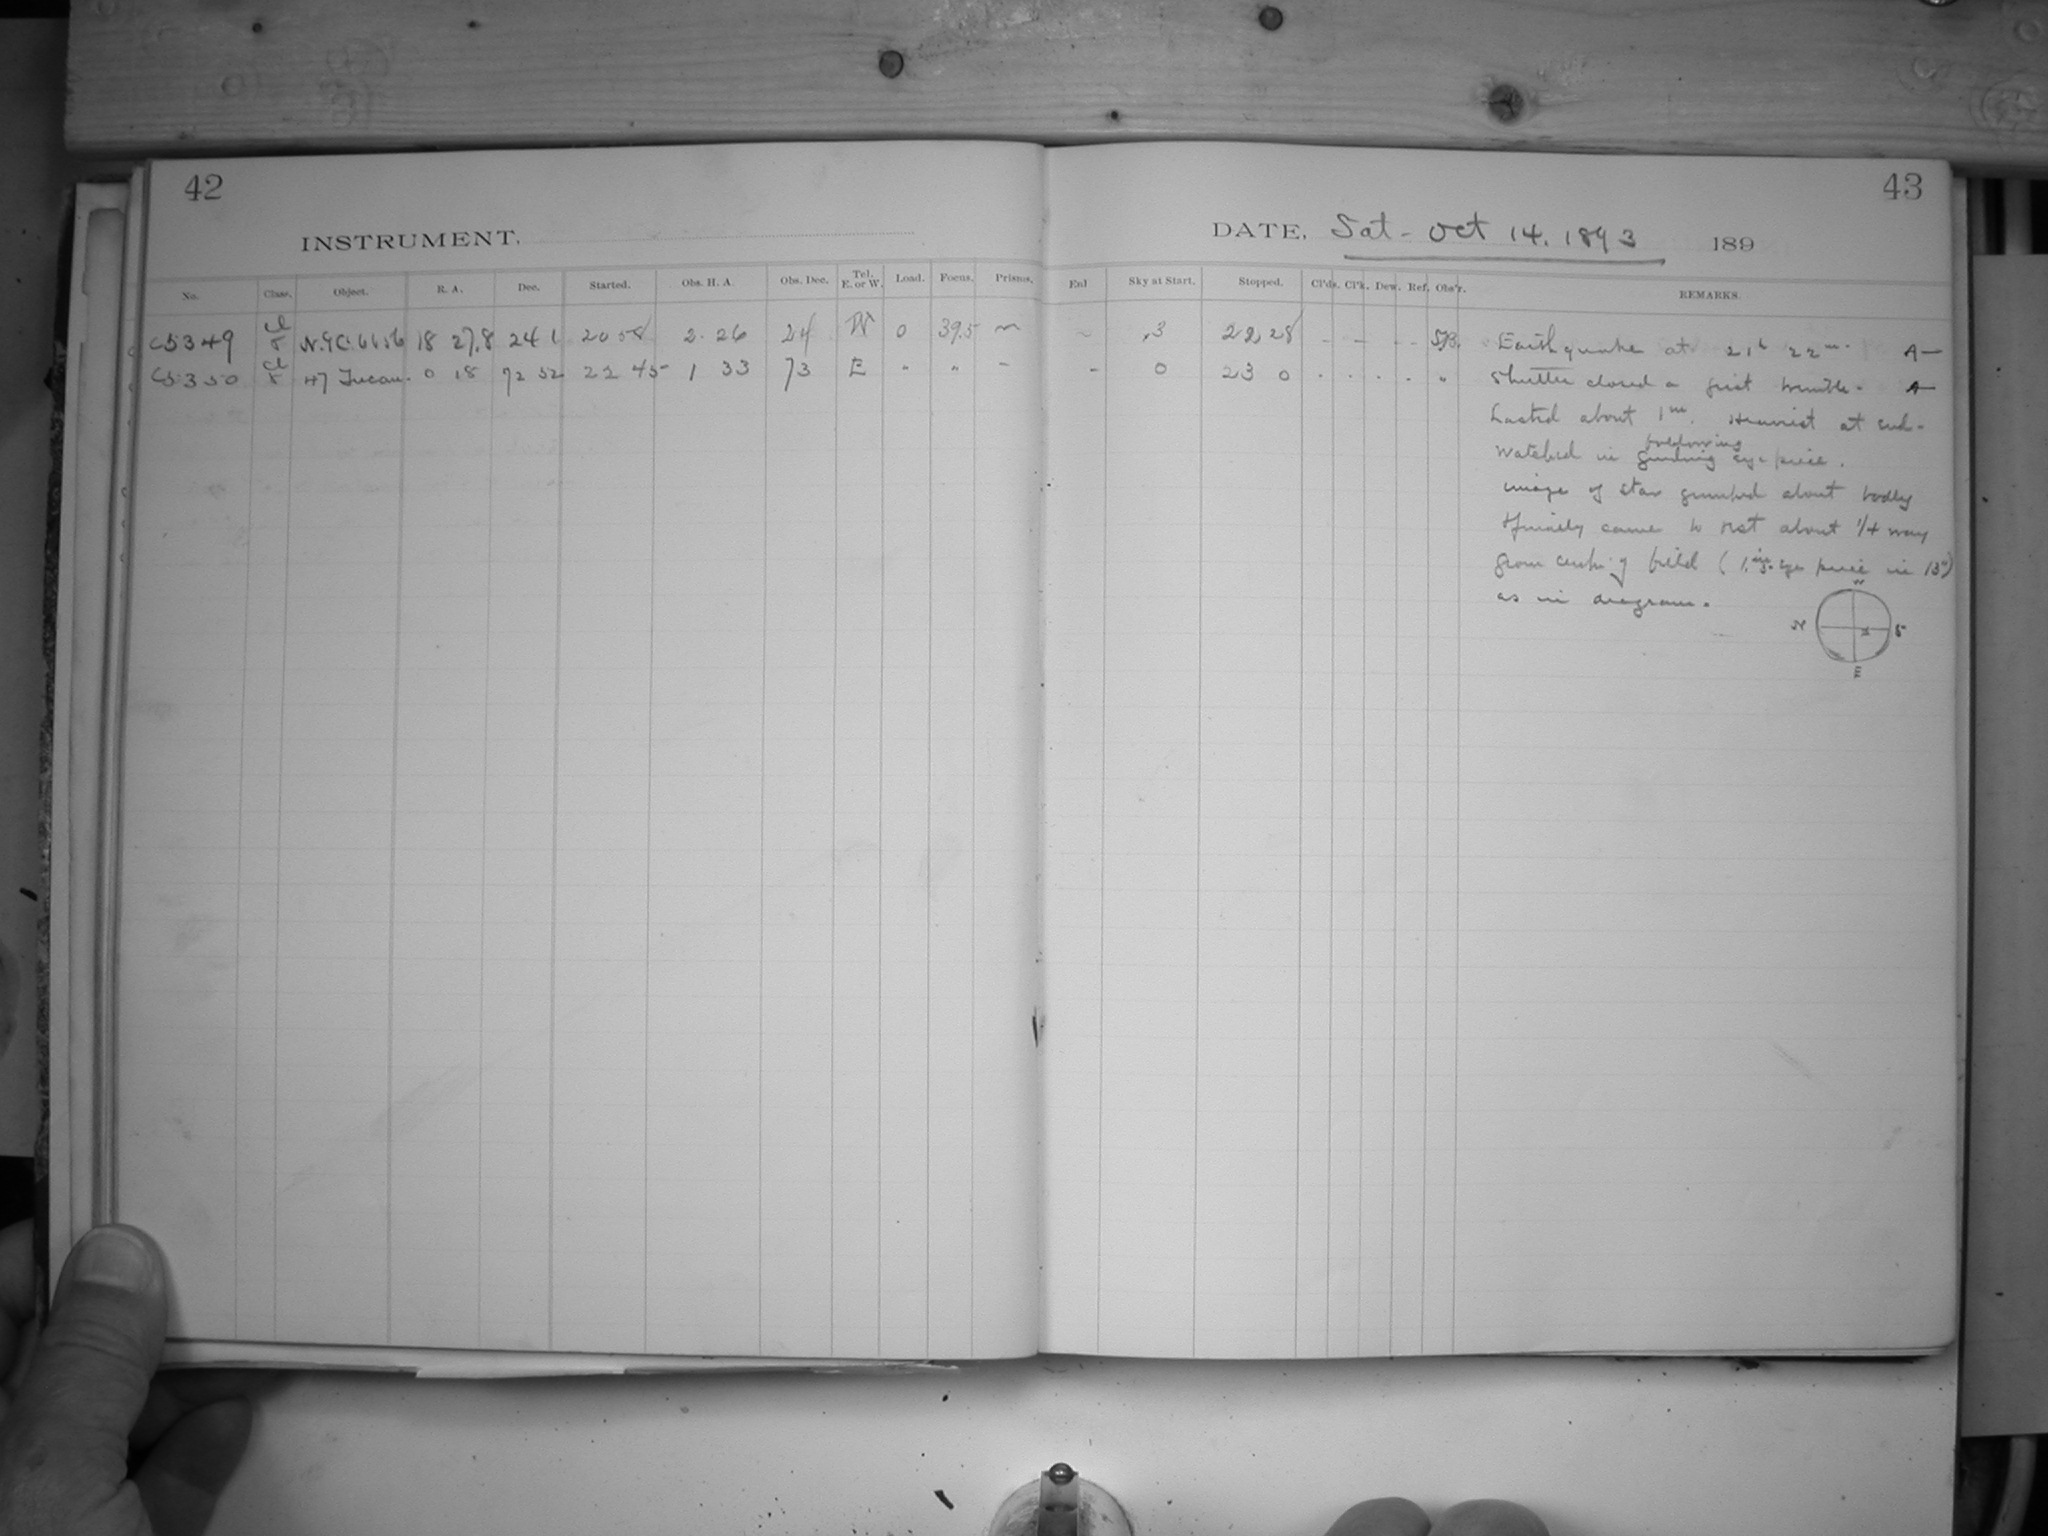 42
43
INSTRUMENT.
DATE, Sat - Oct 14. 1893 189
No. Class. Object. R. A. Dec. Started. Obs. H. A. Obs. Dec. Tel. E. or W. Load. Focus. Prisms. Enl Sky at Start. Stopped. Cl'ds. Cl'k. Dew. Ref. Obs'r. REMARKS.
C5349 Cl N.G.C. 6656 18 27.8 24 1 20 58 2. 26 24 W 0 39.5 — ~ .3 22,28 - - - - Earthquake at 21h 22m. A—
C5350 Cl 47 Tucan. 0 18 72 52 22 45 1 33 73 E " " — - 0 23 0 . . . . " Shutter closed a first tremble. A—
Lasted about 1m. Heaviest at end.
following
Watched in guiding eye piece.
image of star jumped about badly
& finally came to rest about 1/4 way
from centre of field ( 1 in. eye piece in 13")
as in diagram.
W
N S
E